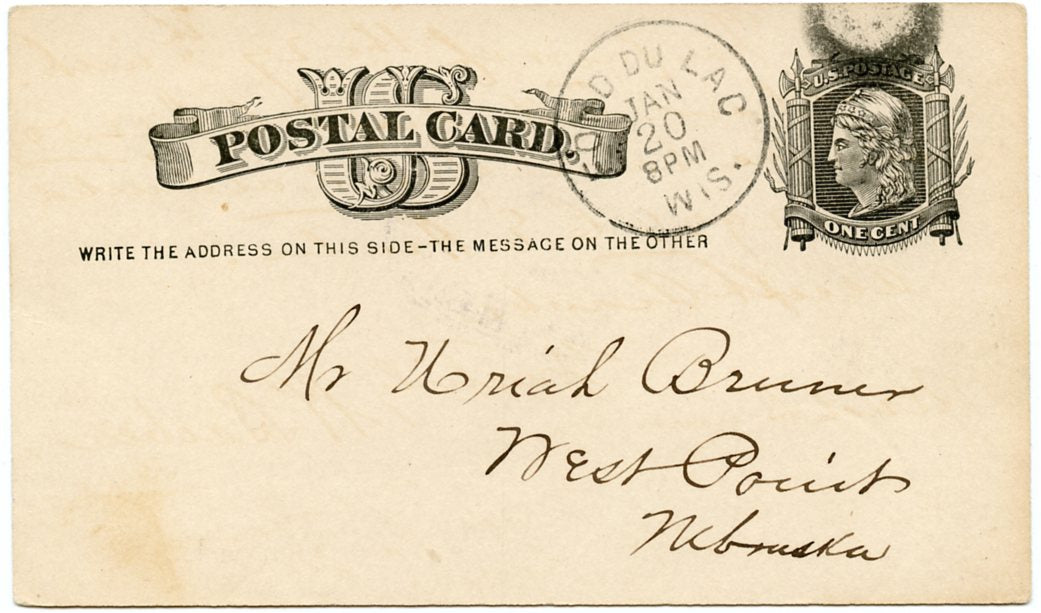 US
POSTAL CARD.
FOND DU LAC
JAN
20
8PM
WIS.
U.S. POSTAGE
ONE CENT
WRITE THE ADDRESS ON THIS SIDE-THE MESSAGE ON THE OTHER
Mr Uriah Bruner
West Point
Nebraska